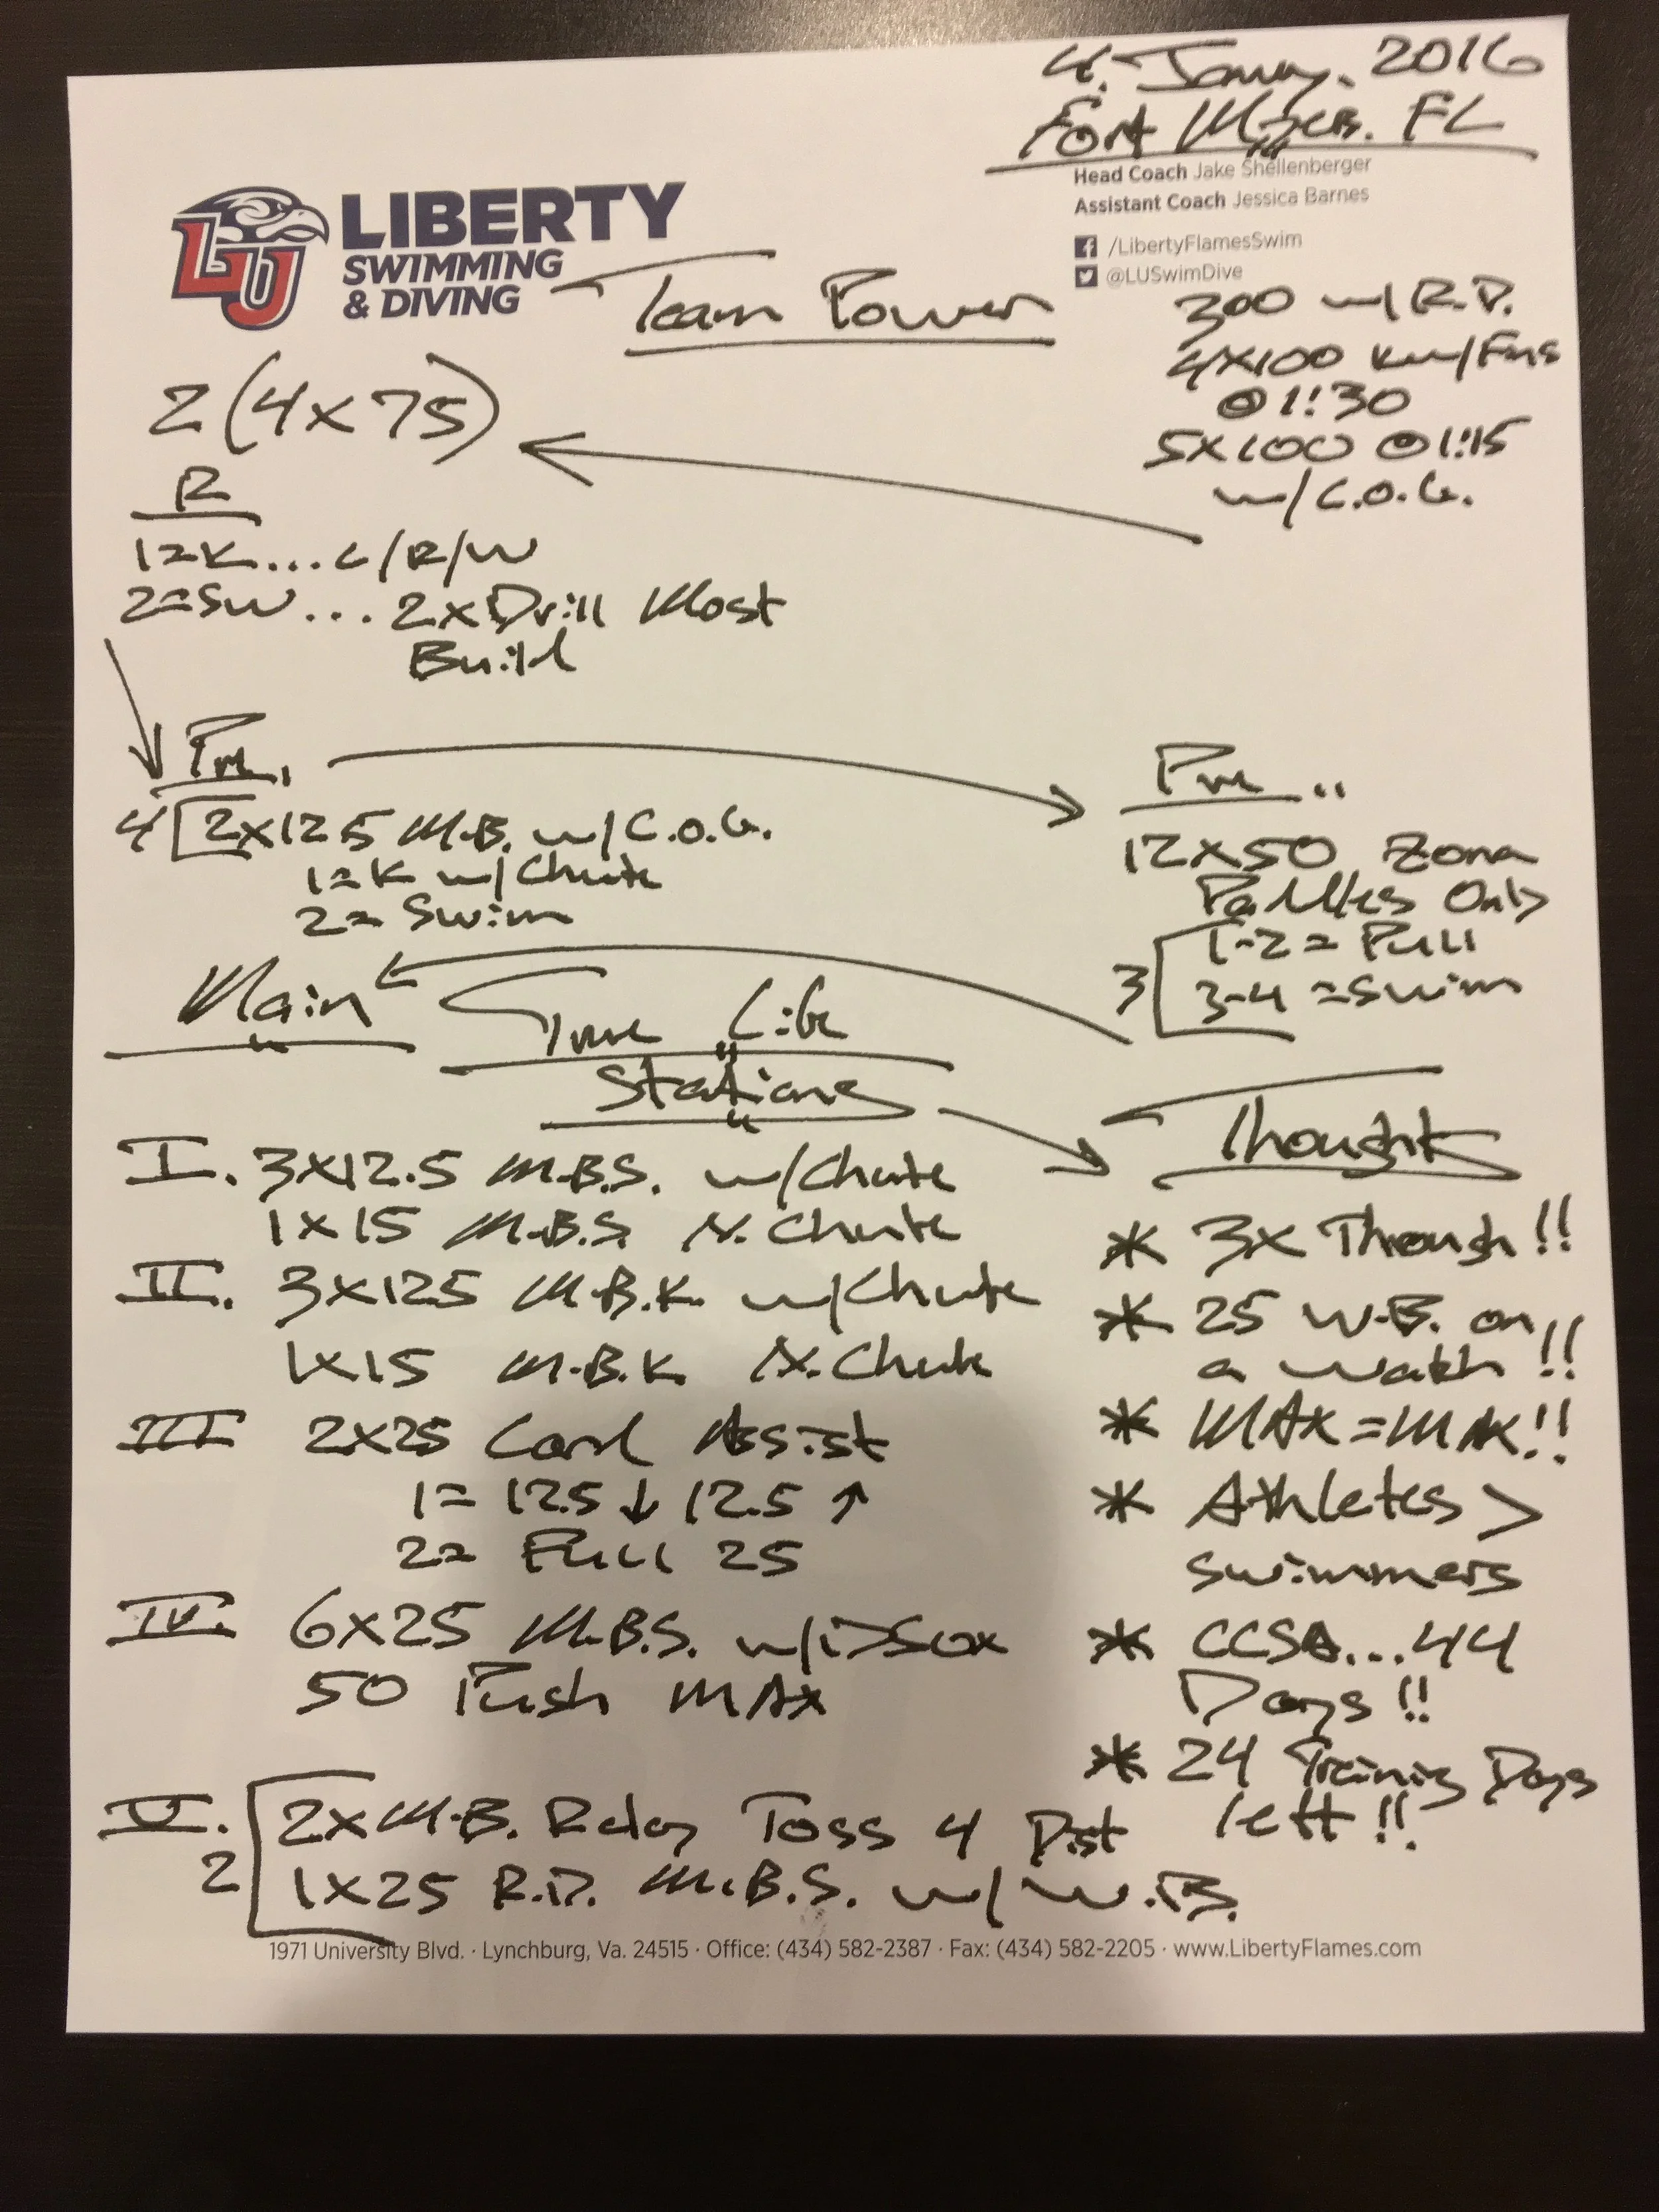 4. January. 2016
Fort Myers. FL
Head Coach Jake Shellenberger
Assistant Coach Jessica Barnes
/LibertyFlamesSwim
@LUSwimDive
LU LIBERTY
SWIMMING
& DIVING
Team Power
300 w/ R.D.
4x100 w/Fins
@ 1:30
5x100 @ 1:15
w/ C.O.G.
2(4x75)
R
1=K... L/R/W
2=SW... 2xDrill Most
Build
Pre.
4 2x12.5 M.B. w/ C.O.G.
1=K w/ Chute
2= Swim
Pre..
12x50 Zona
Paddles Only
3 1-2 = Pull
3-4 = Swim
Main
Time Life
Stations
I. 3x12.5 M.B.S. w/Chute
1x15 M.B.S. N. Chute
II. 3x12.5 M.B.K. w/Chute
1x15 M.B.K. N. Chute
III 2x25 Cord Assist
1= 12.5 ↓ 12.5 ↑
2= Full 25
IV. 6x25 M.B.S. w/DSox
50 Push MAX
V. 2 2x M.B. Relay Toss 4 Dist
1x25 R.D. M.B.S. w/ W.B.
Thoughts
* 3x Through!!
* 25 W.B. on
a watch!!
* MAX=MAX!!
* Athletes >
Swimmers
* CCSA...44
Days!!
* 24 Training Days
left!!
1971 University Blvd. · Lynchburg, Va. 24515 · Office: (434) 582-2387 · Fax: (434) 582-2205 · www.LibertyFlames.com